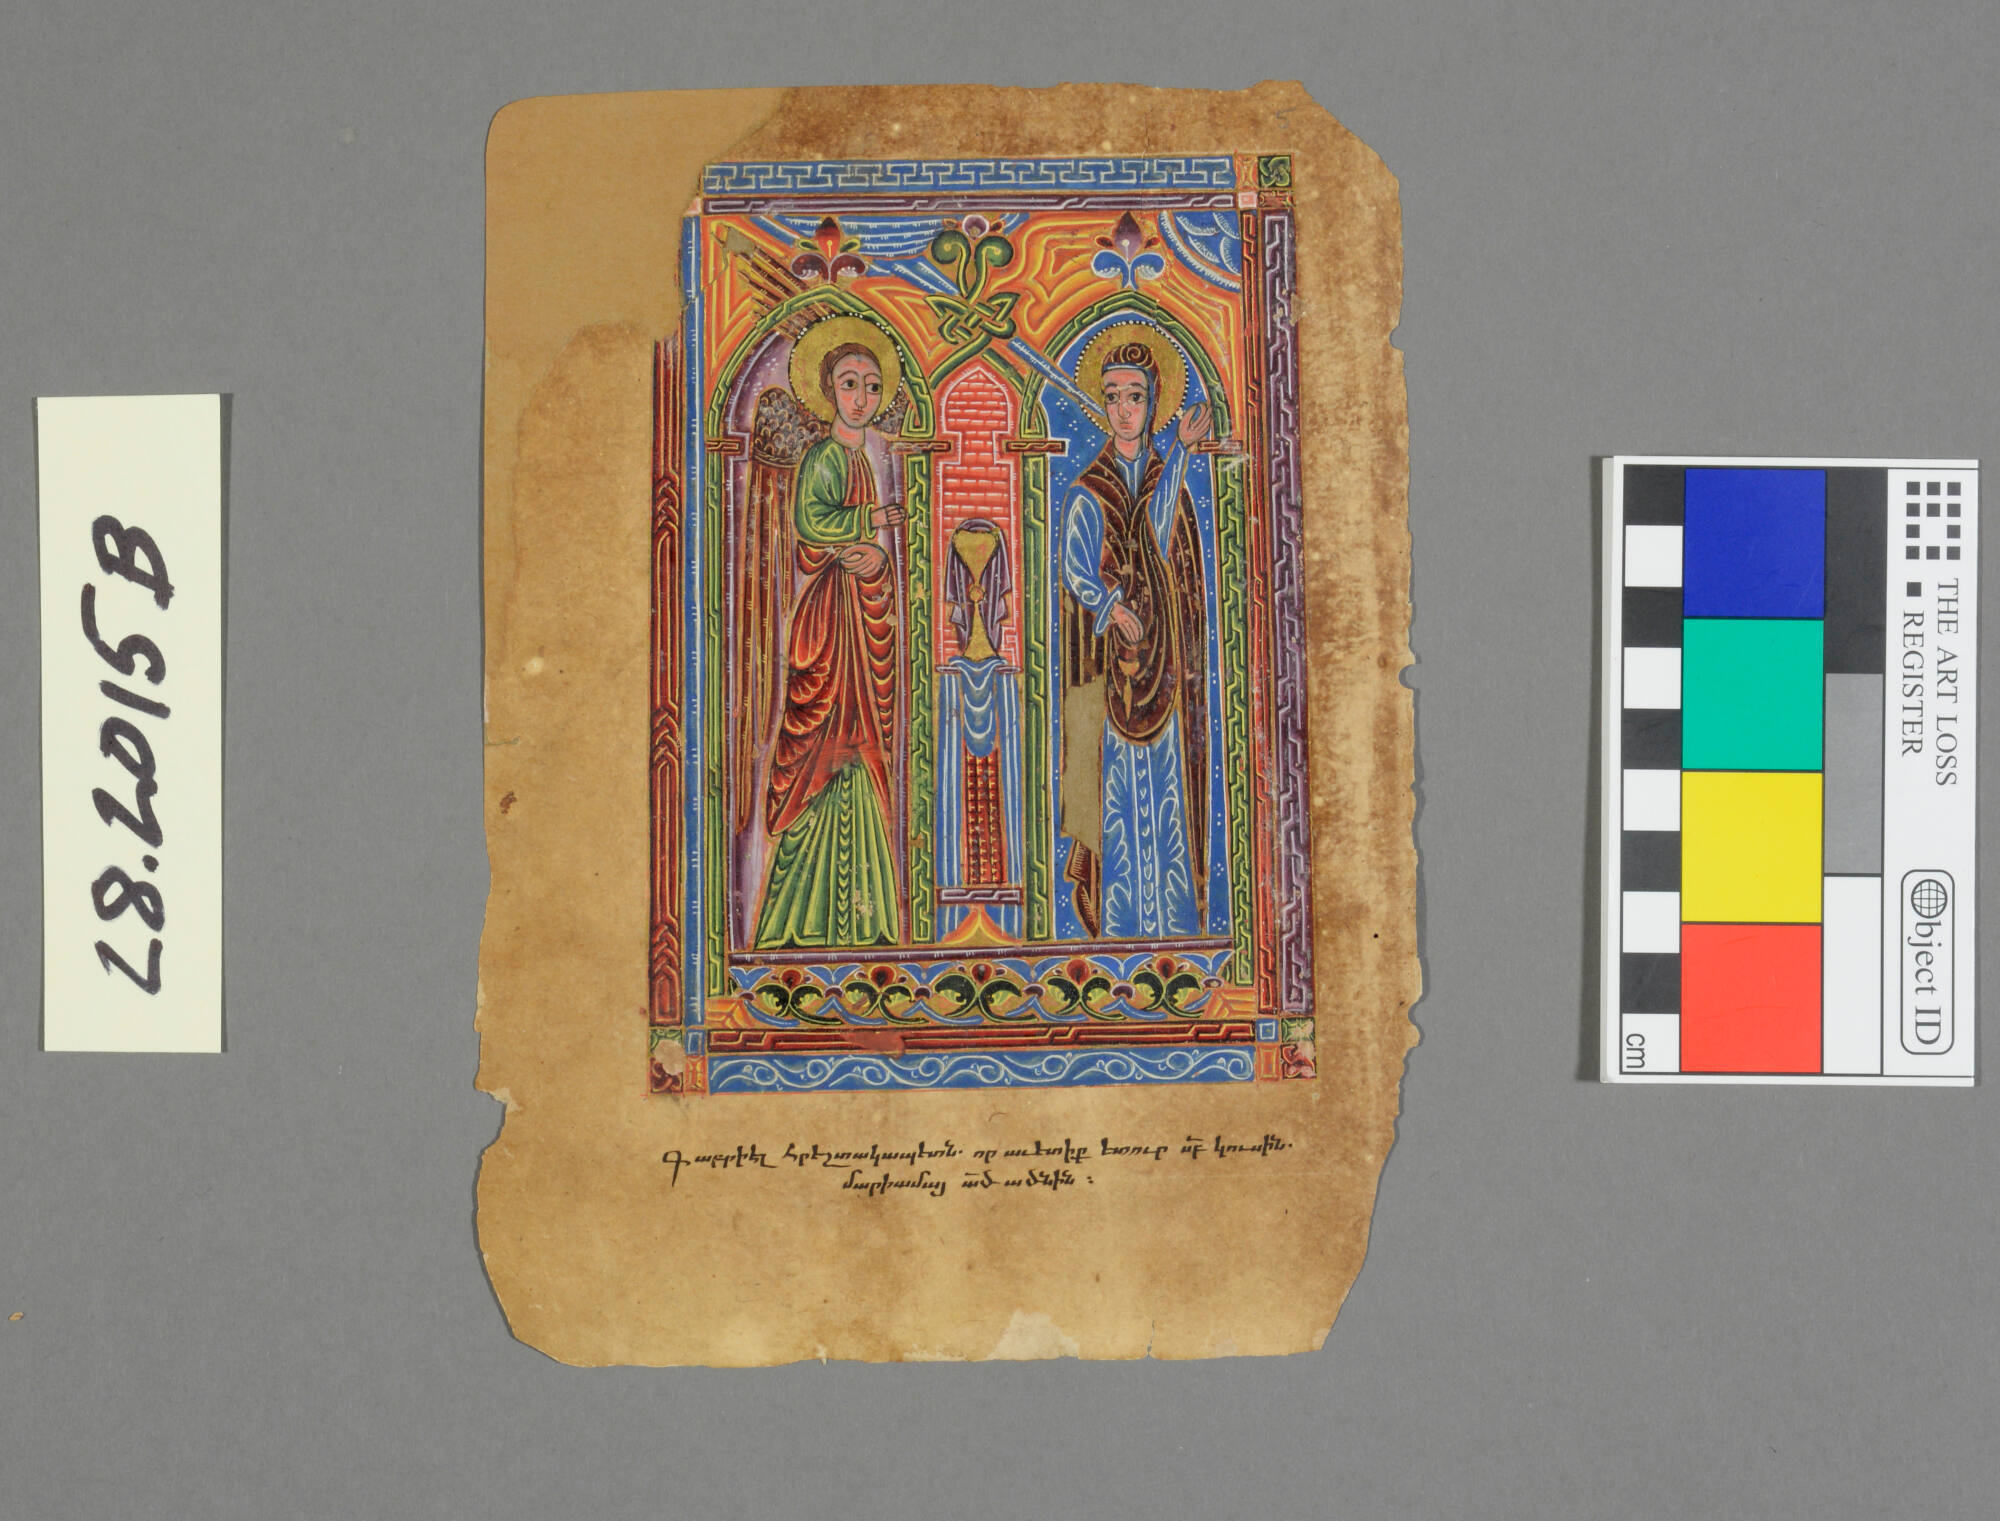 L8.2015B
Գաբրիէլ հրէշտակապետն. որ աւետիք ետուր սբ կուսին.
մարիամայ ած ածնին :
THE ART LOSS
REGISTER
Object ID
cm